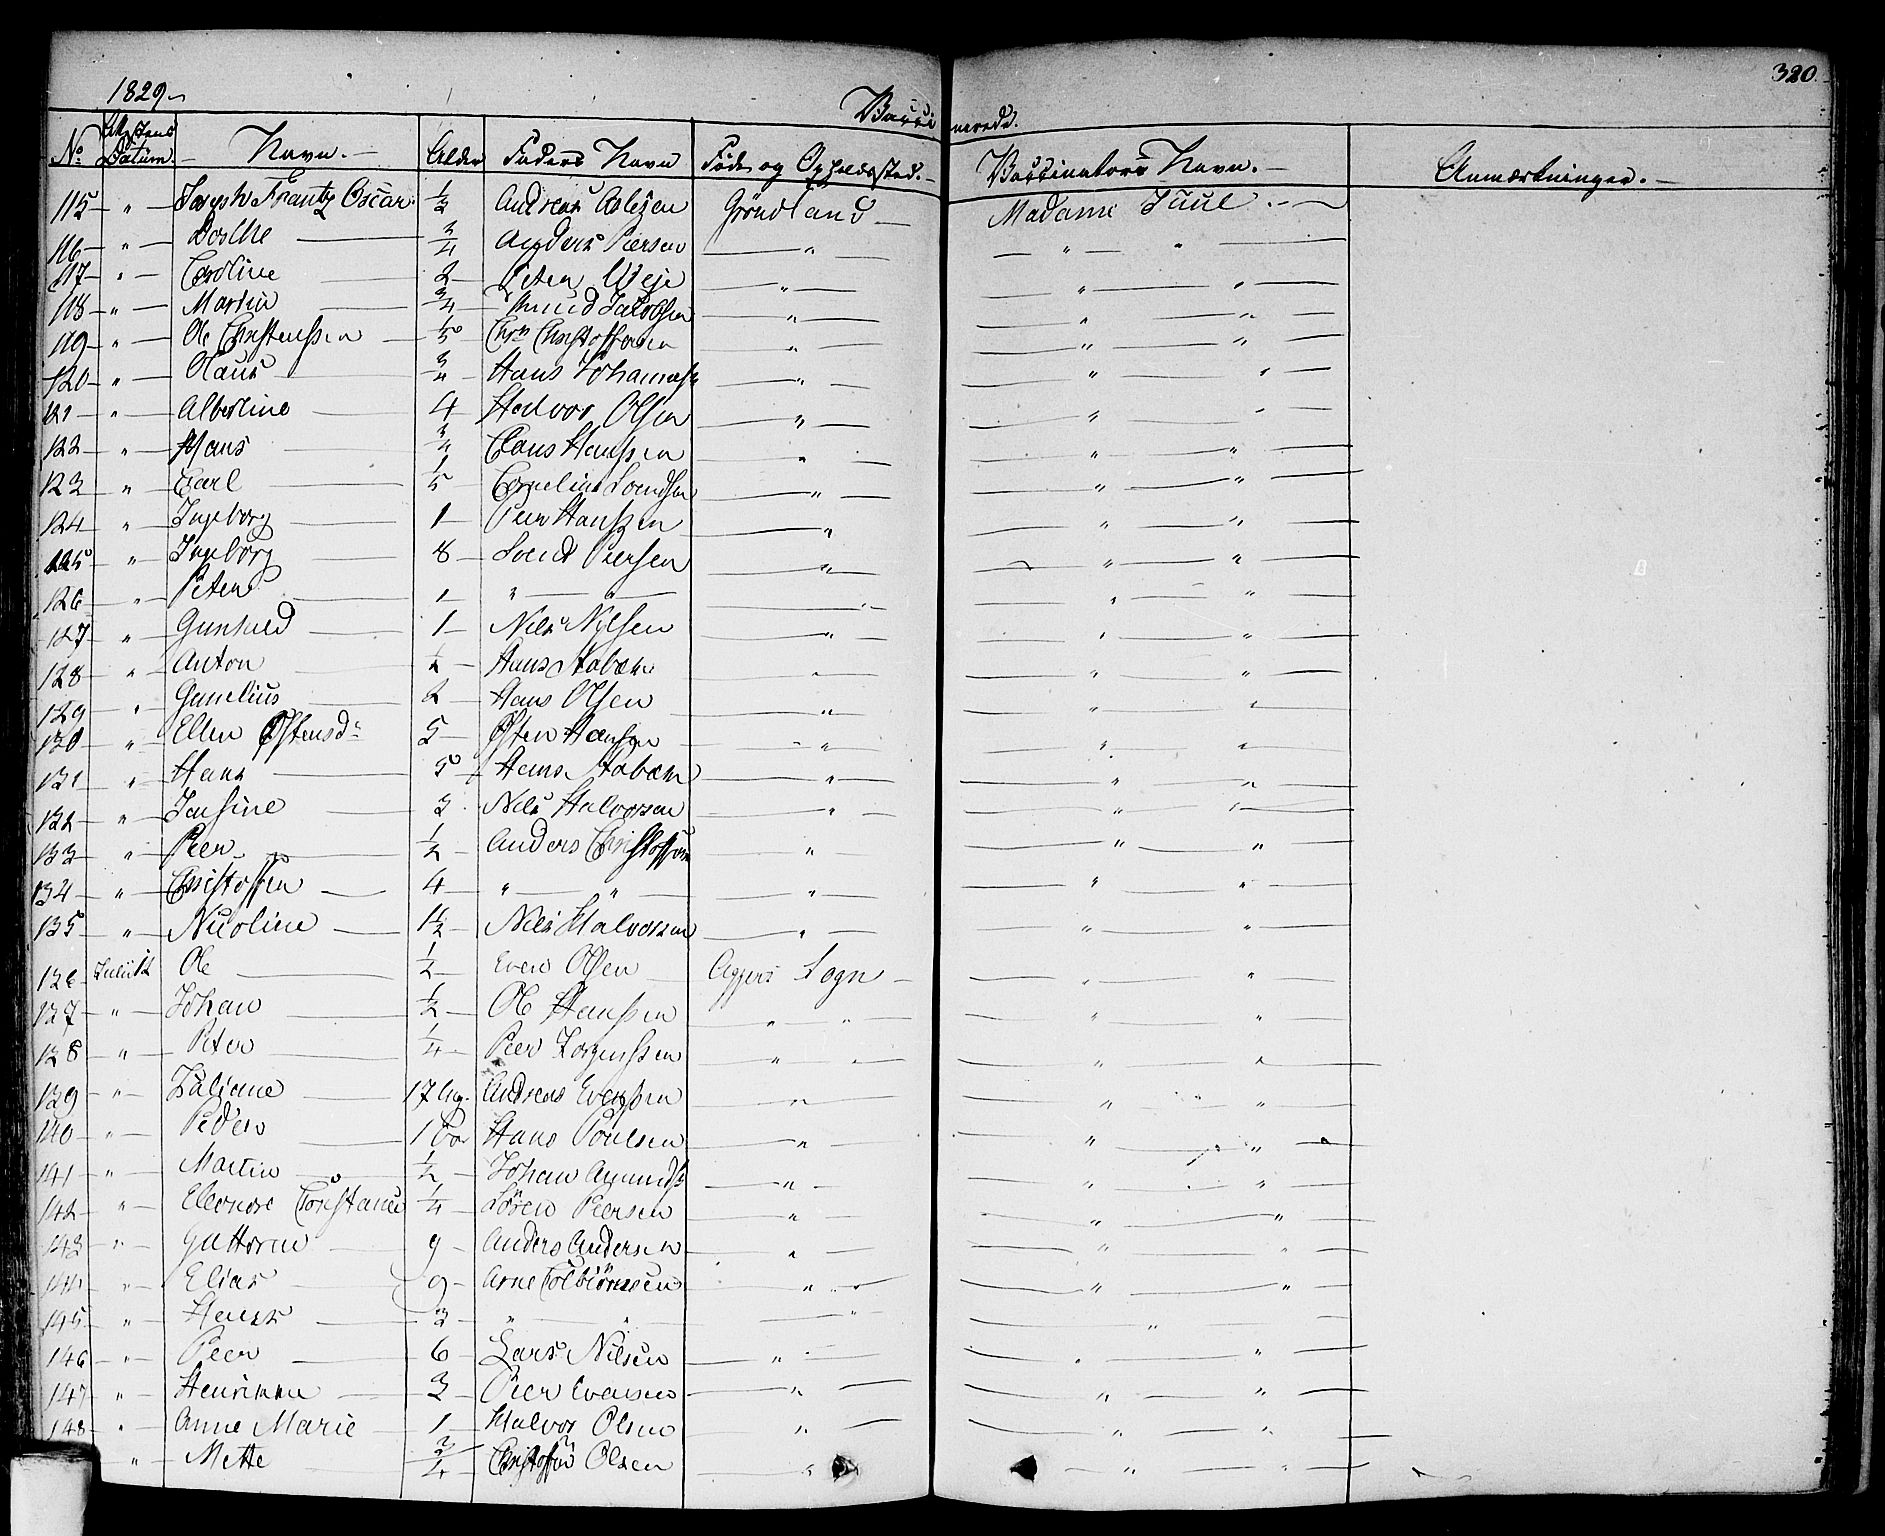 320
1829
Vacci nerede.
No Attestens Datum. Navn. Alder Faders Navn Føde og Opholdssted. Vaccinators Navn. Anmærkninger.
115 " Joseph Frantz Oscar 1/2 Andreas Grøndland Madame Juul
116 " 3/4 Anders Peersen " " "
117 " Caroline 2 Peter Weje " " "
118 " Martin 3/4 Knud Jacobsen " " "
119 " Ole Christenssen 5 Chrn Christoffersen " " "
120 " Olaus 3/4 Hans Johannes " " "
121 " Albertine 4 Halvor Olsen " " "
122 " Hans 3/4 Claus Hanssen " " "
123 " Carl 1/5 Cornelius Svendsen " " "
124 " Ingeborg 1 Peer Hanssen " " "
125 " Ingeborg 8 Svend Peersen " " "
126 " Peter 1 " " " " "
127 " Gunhild 1 Nils Nilsen " " "
128 " Anton 1/2 Hans Stabæk " " "
129 " Gunelius 2 Hans Olsen " " "
130 " Ellen Østensdr 5 Østen Hansen " " "
131 " Hans 5 Hans Stabæk " " "
132 " Jensine 3 Nils Halvorsen " " "
133 " Peer 1/2 Anders Christoffersen " " "
134 " Christoffen 4 " " " " "
135 " Nicoline 1 1/2 Nils Halvorsen " " "
136 Julii 12 Ole 1/2 Even Olsen Aggers Sogn " "
137 " Johan 1/2 Ole Hanssen " " " "
138 " Peter 1/4 Peer Jørgenssen " " " "
139 " Juliane 17 Ug. Andreas Evenssen " " "
140 " Peder 1 Hans Poulsen " " "
141 " Martin 1/2 Johan Amunds " " "
142 " Eleonore Constance 1/4 Søren Peersen " " "
143 " Guttorm 9 Anders Andersen " " "
144 " Elias 9 Arne Colbiørnsen " " "
145 " Hans 3 " " " "
146 " Peer 6 Lars Nilsen " " "
147 " Henrikke 3 Peer Evensen " " "
148 " Anne Marie 1 Halvor Olsen " " "
" Mette 3/4 Christoffer Olsen " " "